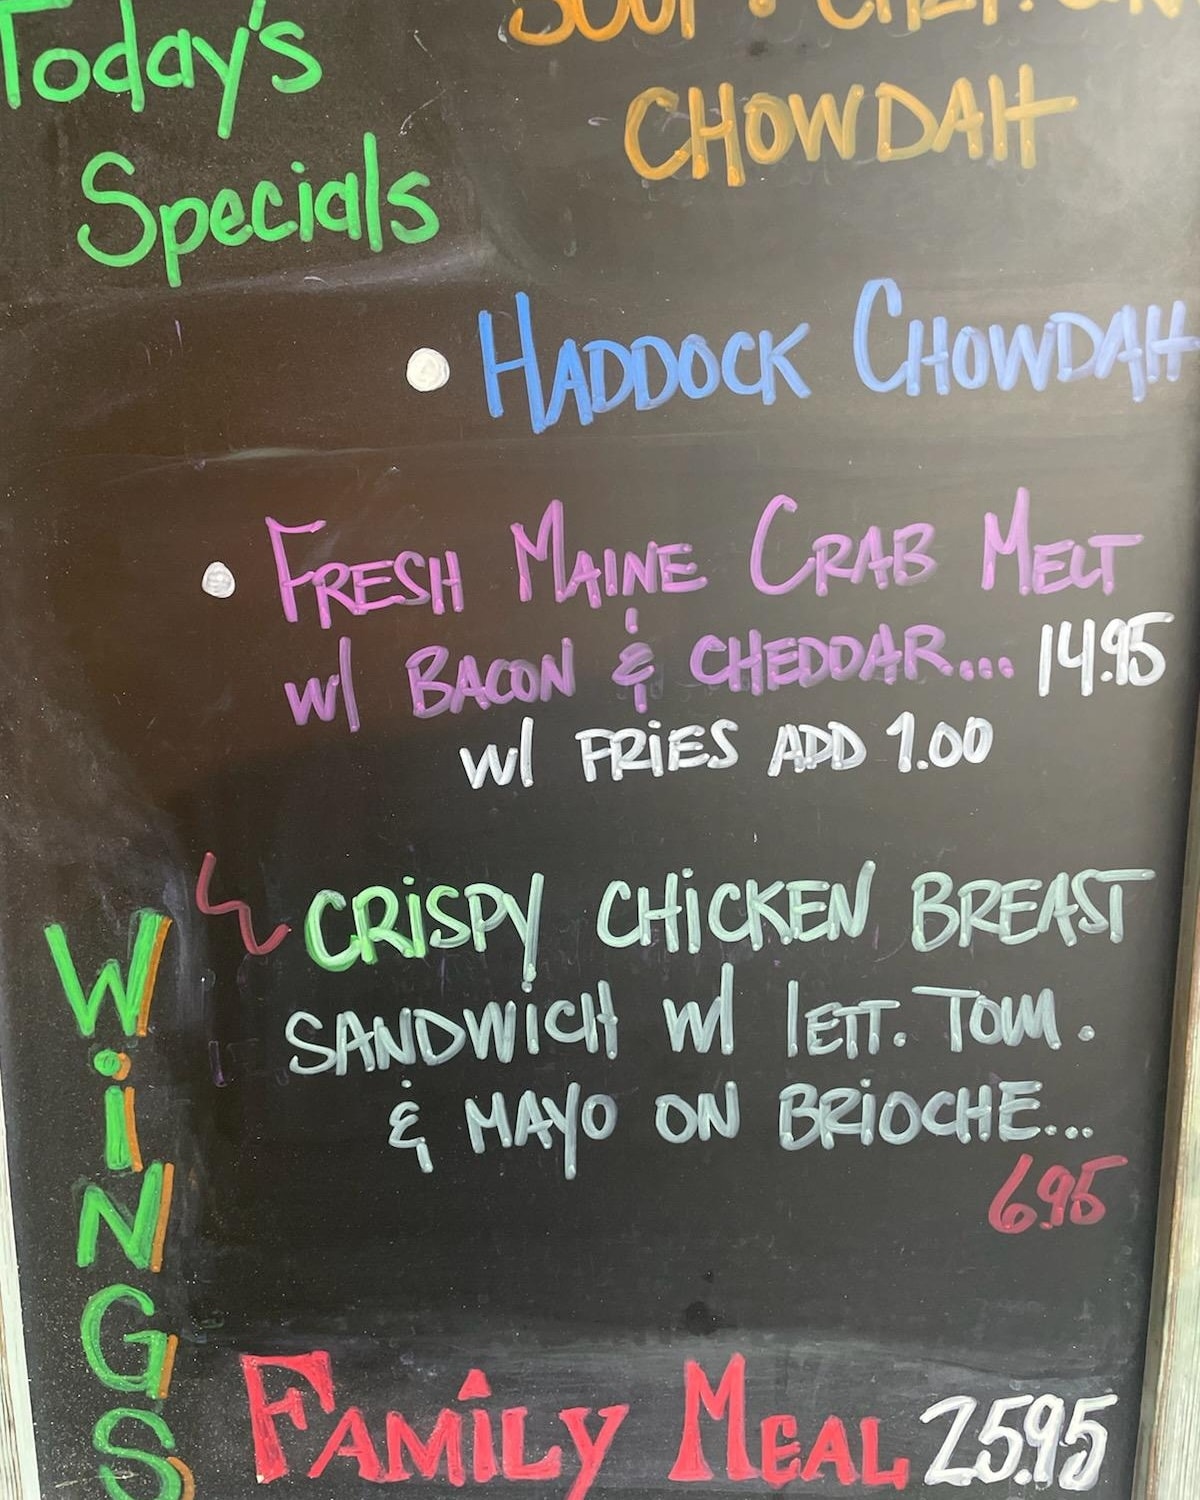 Today's
Specials
SOUP:
CHOWDAH
HADDOCK CHOWDAH
FRESH MAINE CRAB MELT
w/ BACON & CHEDDAR... 14.95
w/ FRiES ADD 1.00
CRiSPY CHiCKEN BREAST
SANDWiCH w/ LETT. TOM.
& MAYO ON BRiOCHE...
6.95
WiNGS
FAMiLY MEAL 25.95